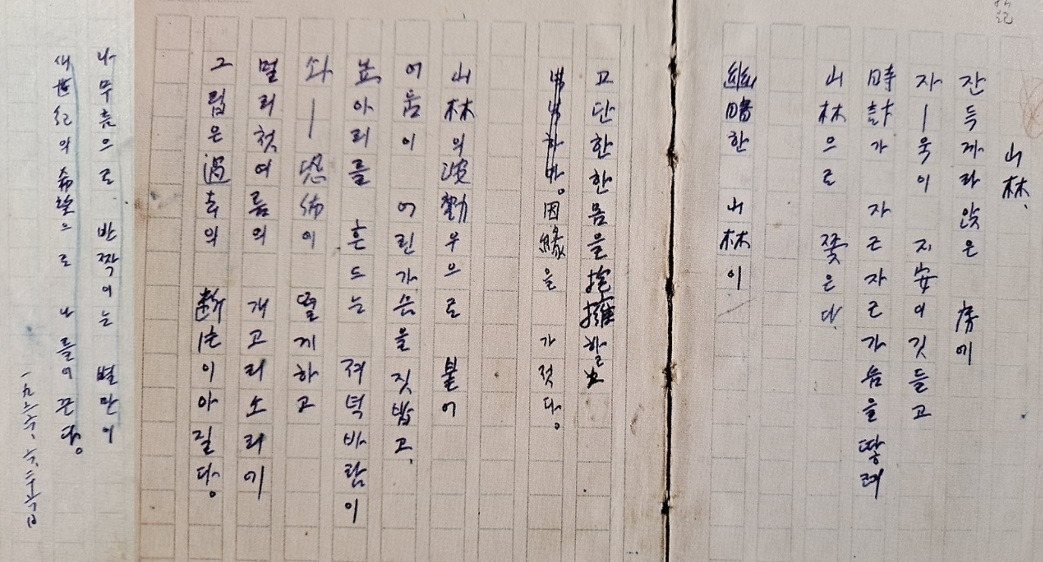 山林、
잔득까라앉은 房에
자—욱이 不安이깃들고
時計가 자근자근가슴을땋려
山林으로 쫓은다
幽暗한 山林이
고단한한몸을抱擁할
因緣을 가젓다。
山林의波動우으로 붙어
어둠이 어린가슴을짓밟고、
흔드는 져녁바람이
솨—恐怖에 떨게하고
멀리첫여름의 개고리소리에
그립은過去의 이아질다。
나무틈으로 반짝이는 별만이
새世紀의希望으로 나를이끈다。
一九三六、六、二十六日